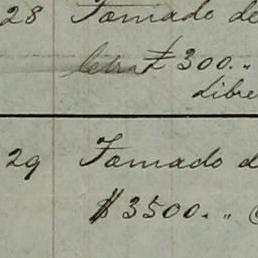 28 Tomado de
letra £ 300. "
Libre
29 Tomado d
$ 3500. "